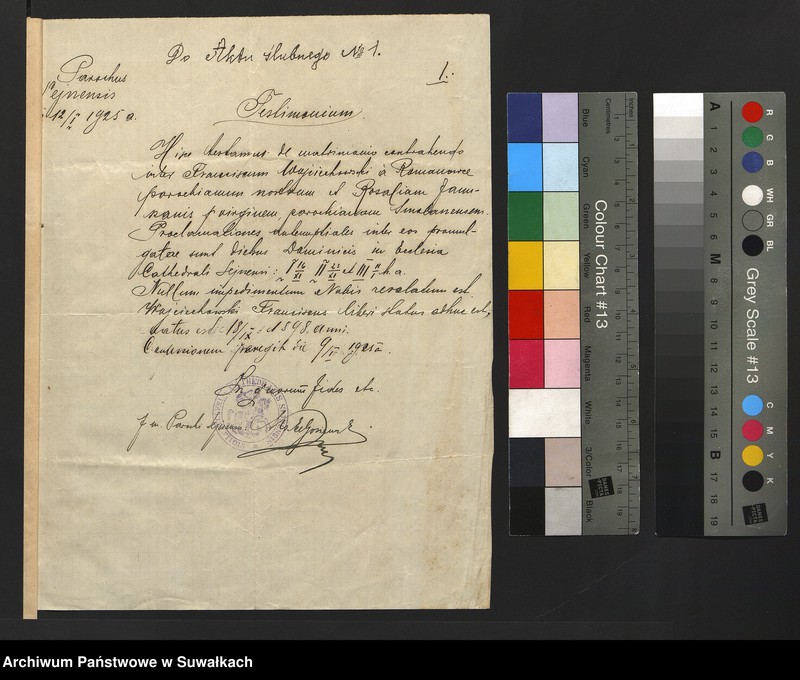 Do Aktu ślubnego № 1.
1.
Parochus
Sejnensis
12/II 1925 a.
Testimonium.
Hisce testamur de matrimonio contrahendo
inter Franciscum Wojciechowski à Romanowce
parochianum nostrum et Rosaliam
virginem, parochianam
Proclamationes antenuptiales inter eos promul-
gatae sunt diebus Dominicis in Ecclesia
Cathedrali Sejnensi: I II et III h. a.
Nullum impedimentum Nobis revelatum est.
Wojciechowski Franciscus liberi status adhuc est,
natus est 18/IX 1898 anni.
Confessionem peregit die 9/II 1925 a.
In quorum fides etc.
Colour Chart #13
Blue
Cyan
Green
Yellow
Red
Magenta
White
3/Color
Black
Centimetres
Inches
DANES
PICTA
Grey Scale #13
A 1 2 3 4 5 6 M 8 9 10 11 12 13 14 15 B 17 18 19
R
G
B
WH
GR
BL
C
M
Y
K
Archiwum Państwowe w Suwałkach